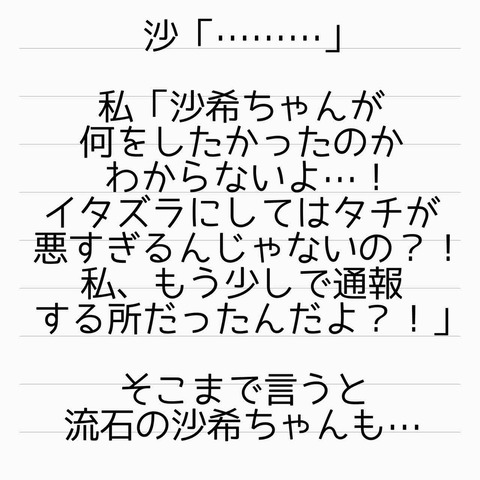 沙「………」
私「沙希ちゃんが
何をしたかったのか
わからないよ…！
イタズラにしてはタチが
悪すぎるんじゃないの？！
私、もう少しで通報
する所だったんだよ？！」
そこまで言うと
流石の沙希ちゃんも…